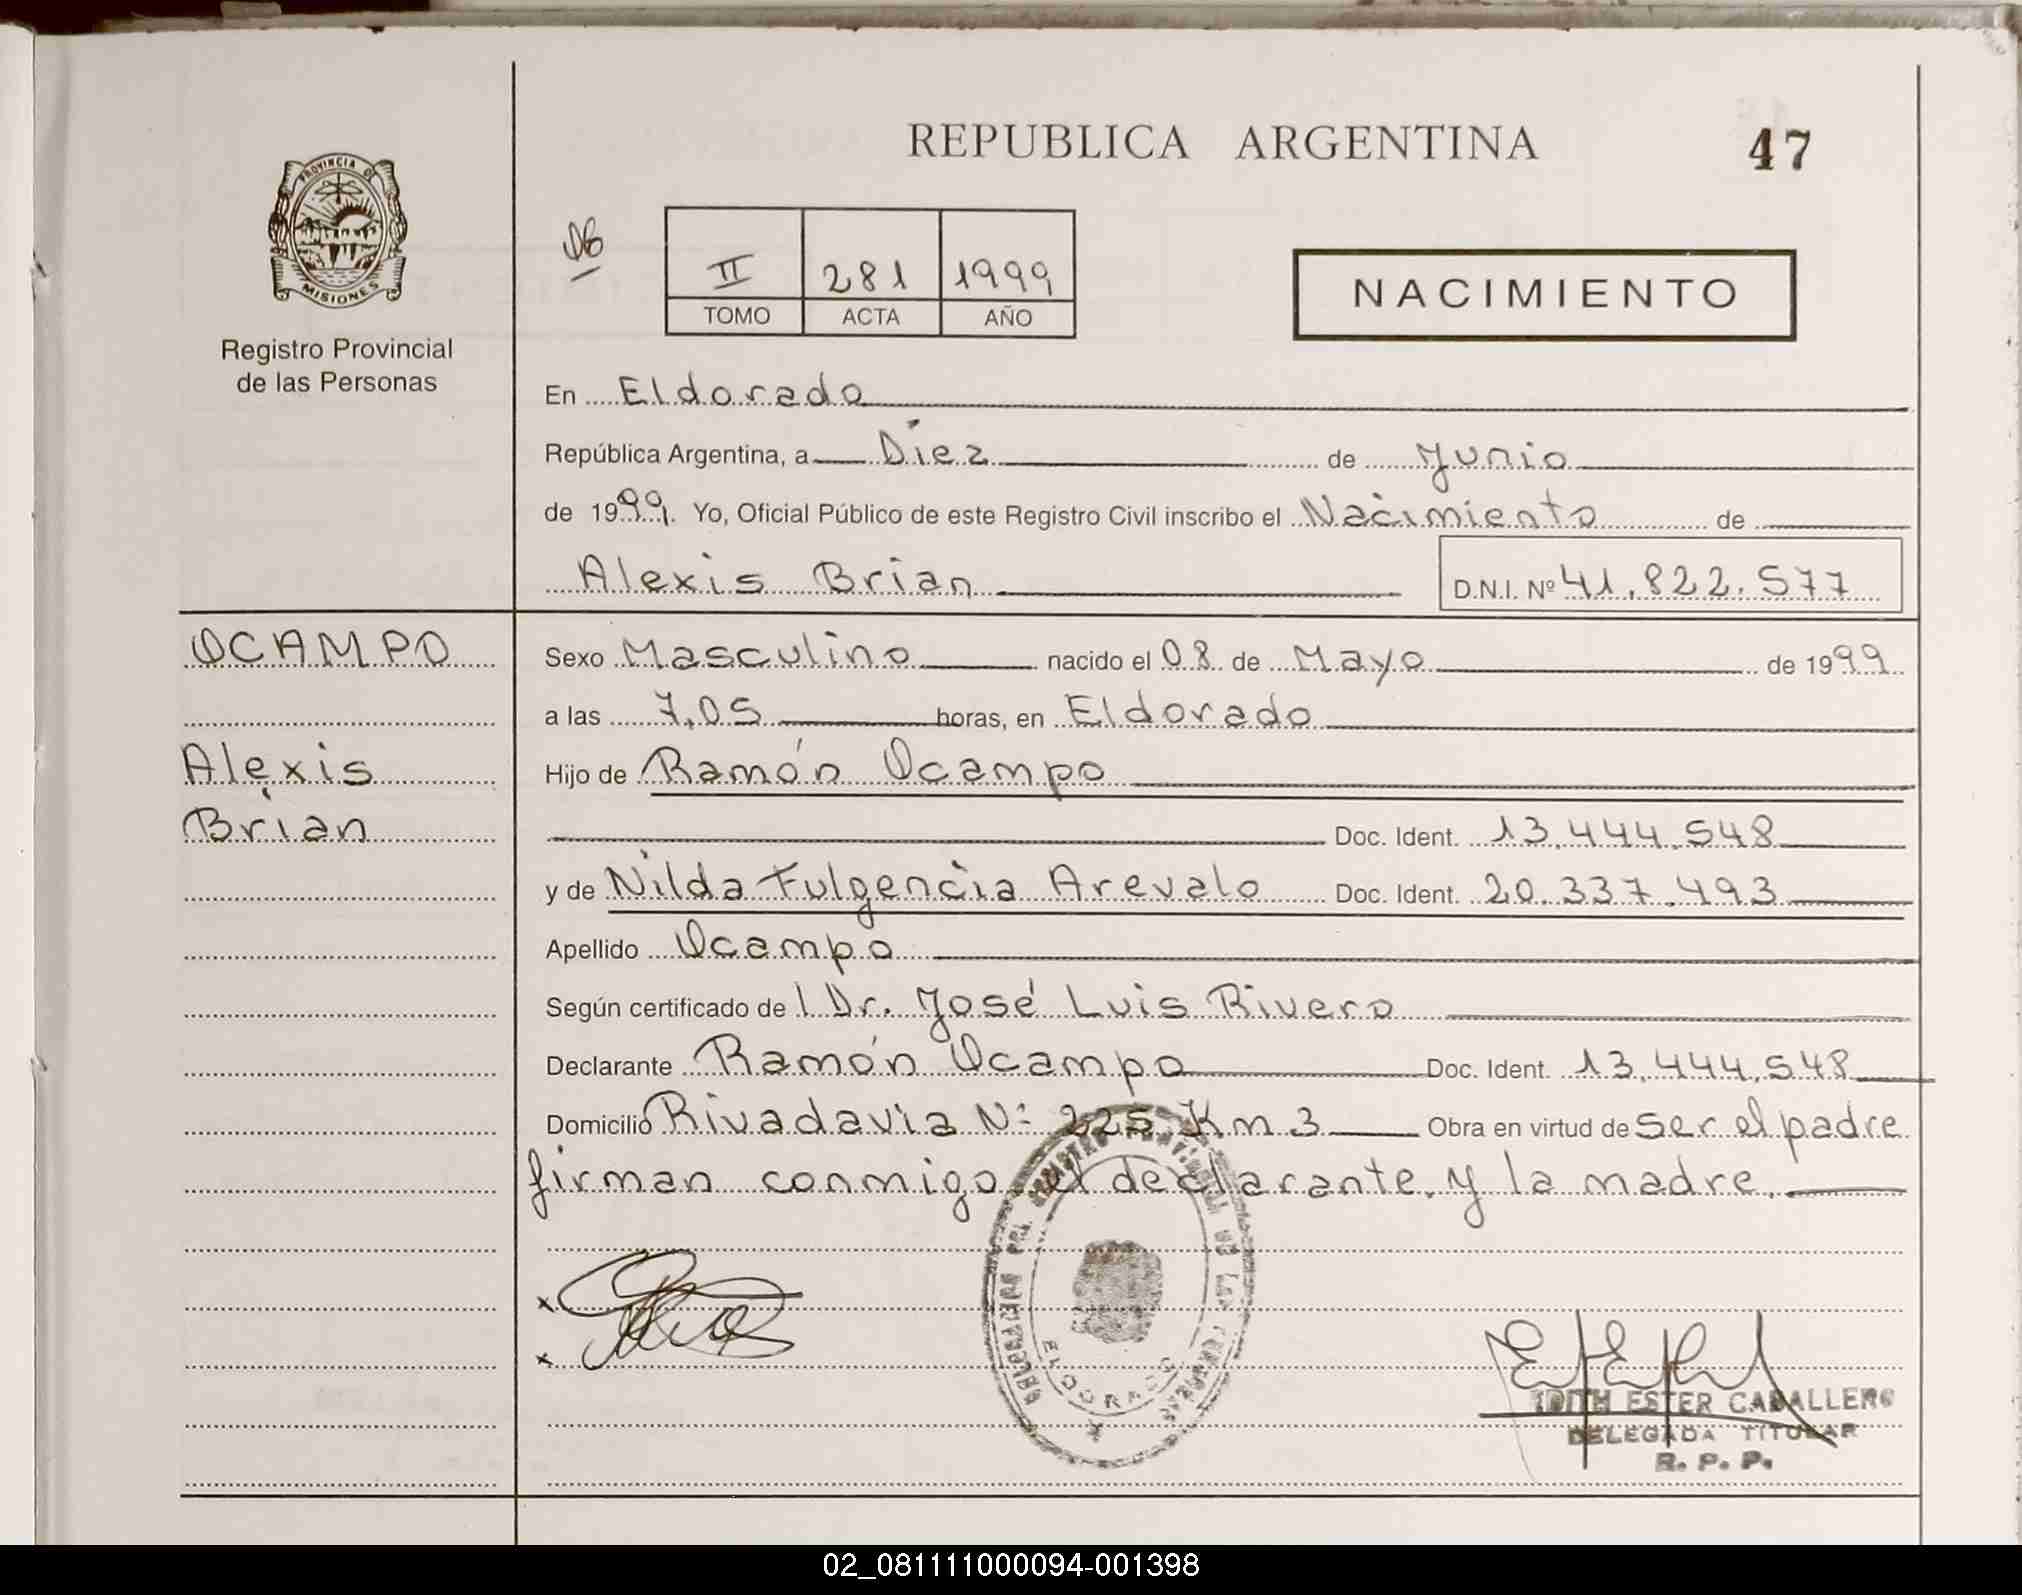 REPUBLICA ARGENTINA
47
PROVINCIA DE
MISIONES
Registro Provincial
de las Personas
II 281 1999
TOMO ACTA AÑO
NACIMIENTO
En Eldorado
República Argentina, a Diez de Junio
de 1999. Yo, Oficial Público de este Registro Civil inscribo el Nacimiento de
Alexis Brian D.N.I. Nº 41.822.577
OCAMPO
Alexis
Brian
Sexo Masculino nacido el 08 de Mayo de 1999
a las 7,05 horas, en Eldorado
Hijo de Ramón Ocampo
Doc. Ident. 13.444.548
y de Nilda Fulgencia Arevalo Doc. Ident. 20.337.493
Apellido Ocampo
Según certificado de l Dr. José Luis Rivero
Declarante Ramón Ocampo Doc. Ident. 13.444.548
Domicilio Rivadavia Nº 225 Km 3 Obra en virtud de ser el padre
firman conmigo el declarante y la madre.
x
x
ELDORADO
EDITH ESTER CABALLERO
DELEGADA TITULAR
R. P. P.
02_081111000094-001398